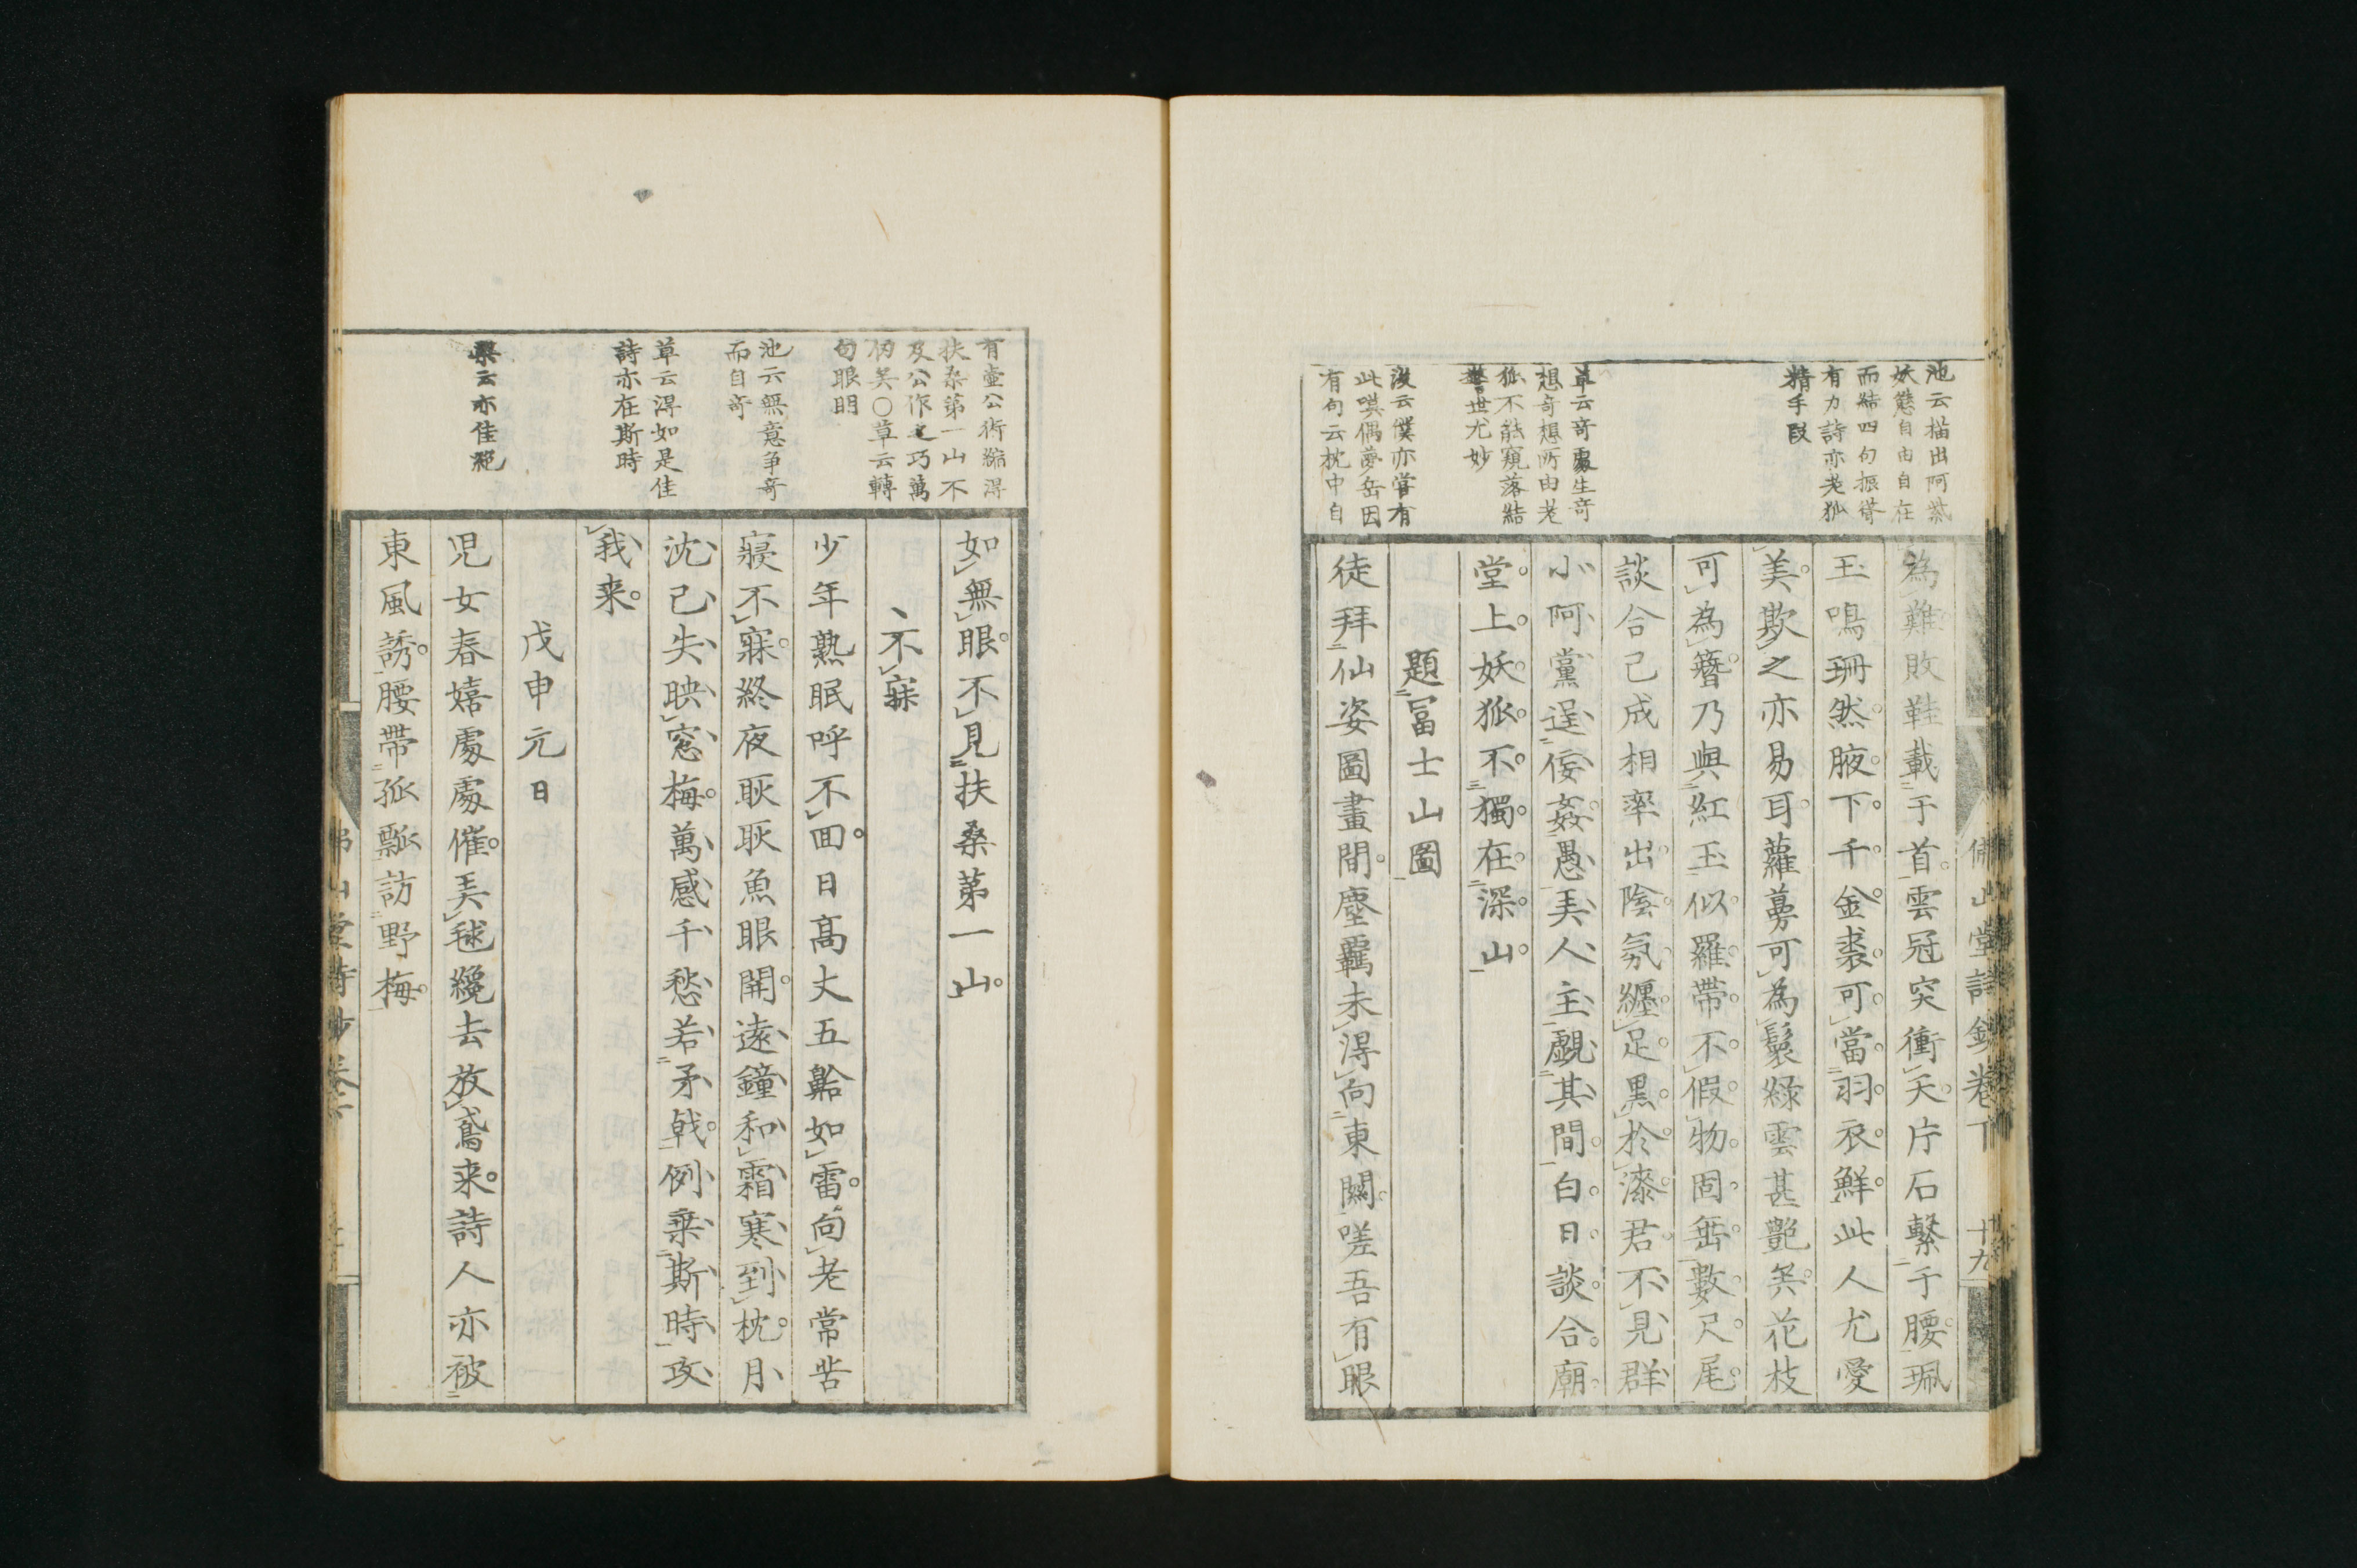 池云描出阿紫
妖態自由自在
而結四句振聳
有力詩亦老狐
精手段
草云奇處生奇
想奇想所由老
狐不能窺落結
警世尤妙
後云僕亦嘗有
此嘆偶夢岳因
有句云枕中自
佛山堂詩鈔卷下 十九
為難敗鞋載于首雲冠突衝天片石繫于腰珮
玉鳴珊然腋下千金裘可當羽衣鮮此人尤愛
美欺之亦易耳蘿蔓可為鬟綠雲甚艷矣花枝
可為簪乃與紅玉似羅帶不假物固垂數尺尾
談合已成相率出陰氛纏足黑於漆君不見群
小阿黨逞佞姦愚弄人主覷其間白日談合廟
堂上妖狐不獨在深山
題冨士山圖
徒拜仙姿圖畫間塵羈未得向東關嗟吾有眼
有壺公術縮得
扶桑第一山不
及公作之巧萬
仞矣○草云轉
句眼明
池云無意爭奇
而自奇
草云得如是佳
詩亦在斯時
梁云亦佳絕
如無眼不見扶桑第一山
不寐
少年熟眠呼不回日高丈五鼾如雷向老常苦
寢不寐終夜耿耿魚眼開遠鐘和霜寒到枕月
沈已失映窓梅萬感千愁若矛戟例乗斯時攻
我来
戊申元日
児女春嬉處處催弄毬纔去放鳶来詩人亦被
東風誘腰帶孤瓢訪野梅